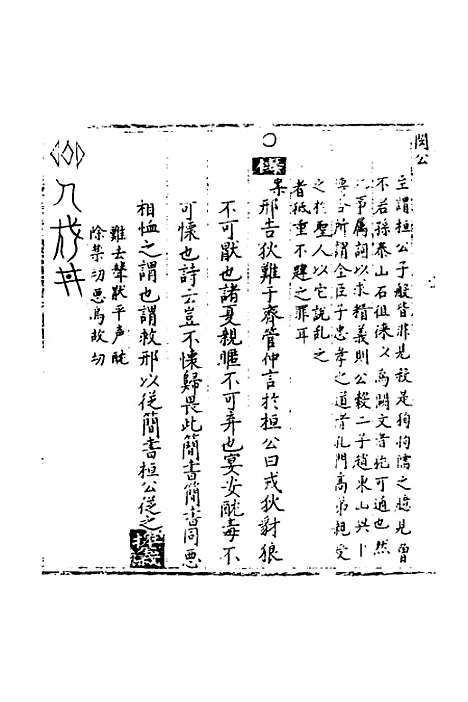 閔公
主謂桓公子般皆非見殺是拘拘儒之臆見曾
不若孫泰山石徂徠以為闕文者抱可通也然
事属詞以求精義則公穀二子趙東山共卜
傳合所謂全臣子忠孝之道者孔門高弟親受
之於聖人以它說乱之
者祇重不韙之罪耳
邢告狄難于齊管仲言於桓公曰戎狄豺狼
不可厭也諸夏親暱不可弃也宴安酖毒不
可懐也詩云豈不懐歸畏此簡書簡書同惡
相恤之謂也謂救邢以從簡書桓公從之
難去聲厭平声酖
除蔭切惡烏故切